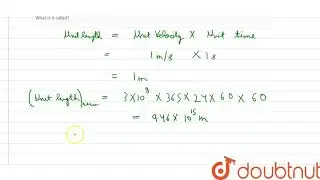 What is it called?
Unit length = Unit Velocity × Unit time
= 1 m/s × 1 s
= 1m
(Unit length)new = 3×10^8 × 365×24×60×60
= 946×10^15 m
doubtnut